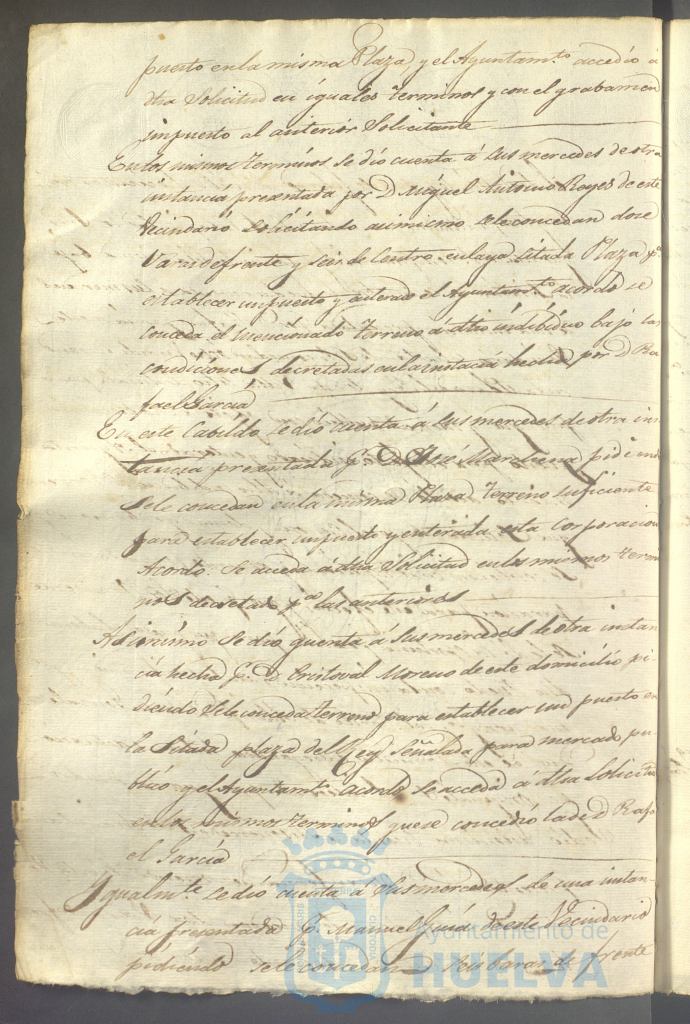 puesto en la misma Plaza, y el Ayuntamto. accedió á
dha Solicitud en iguales terminos y con el grabamen
impuesto al anterior Solicitante
En los mismos terminos se dio cuenta á sus mercedes de otra
instancia presentada por D. Miguel Antonio Reyes de este
Vecindario solicitando asimismo sele concedan doce
Varas de frente y seis de Centro en la ya Citada Plaza pa.
establecer un puesto y enterado el Ayuntamto. acordó se
conceda el mencionado terreno á dho indibiduo bajo las
condiciones decretadas en la instancia hecha por D Ra
fael Garcia
En este Cabildo se dio cuenta á sus mercedes de otra ins
tancia presentada pr. D. José Marchena pidiendo
sele concedan en la misma Plaza terreno suficiente
para establecer un puesto y enterada esta Corporacion
Acordó se acceda á dha Solicitud en los mismos termi
nos decretados pa. las anteriores
Asimismo se dio quenta á sus mercedes de otra instan
cia hecha pr. D Cristoval Moreno de este domicilio pi
diendo sele conceda terreno para establecer un puesto en
la Sitada plaza del Rey Señalada para mercado pu
blico y el Ayuntamto. acordó se acceda á dha Solicitud
en los mismos terminos que se concedió la de D Rafa
el Garcia
Igualmte. se dio cuenta á sus mercedes de una instan-
cia presentada pr. Manuel Guia de este Vecindario
pidiendo sele concedan seis baras de frente
Ayuntamiento de
HUELVA